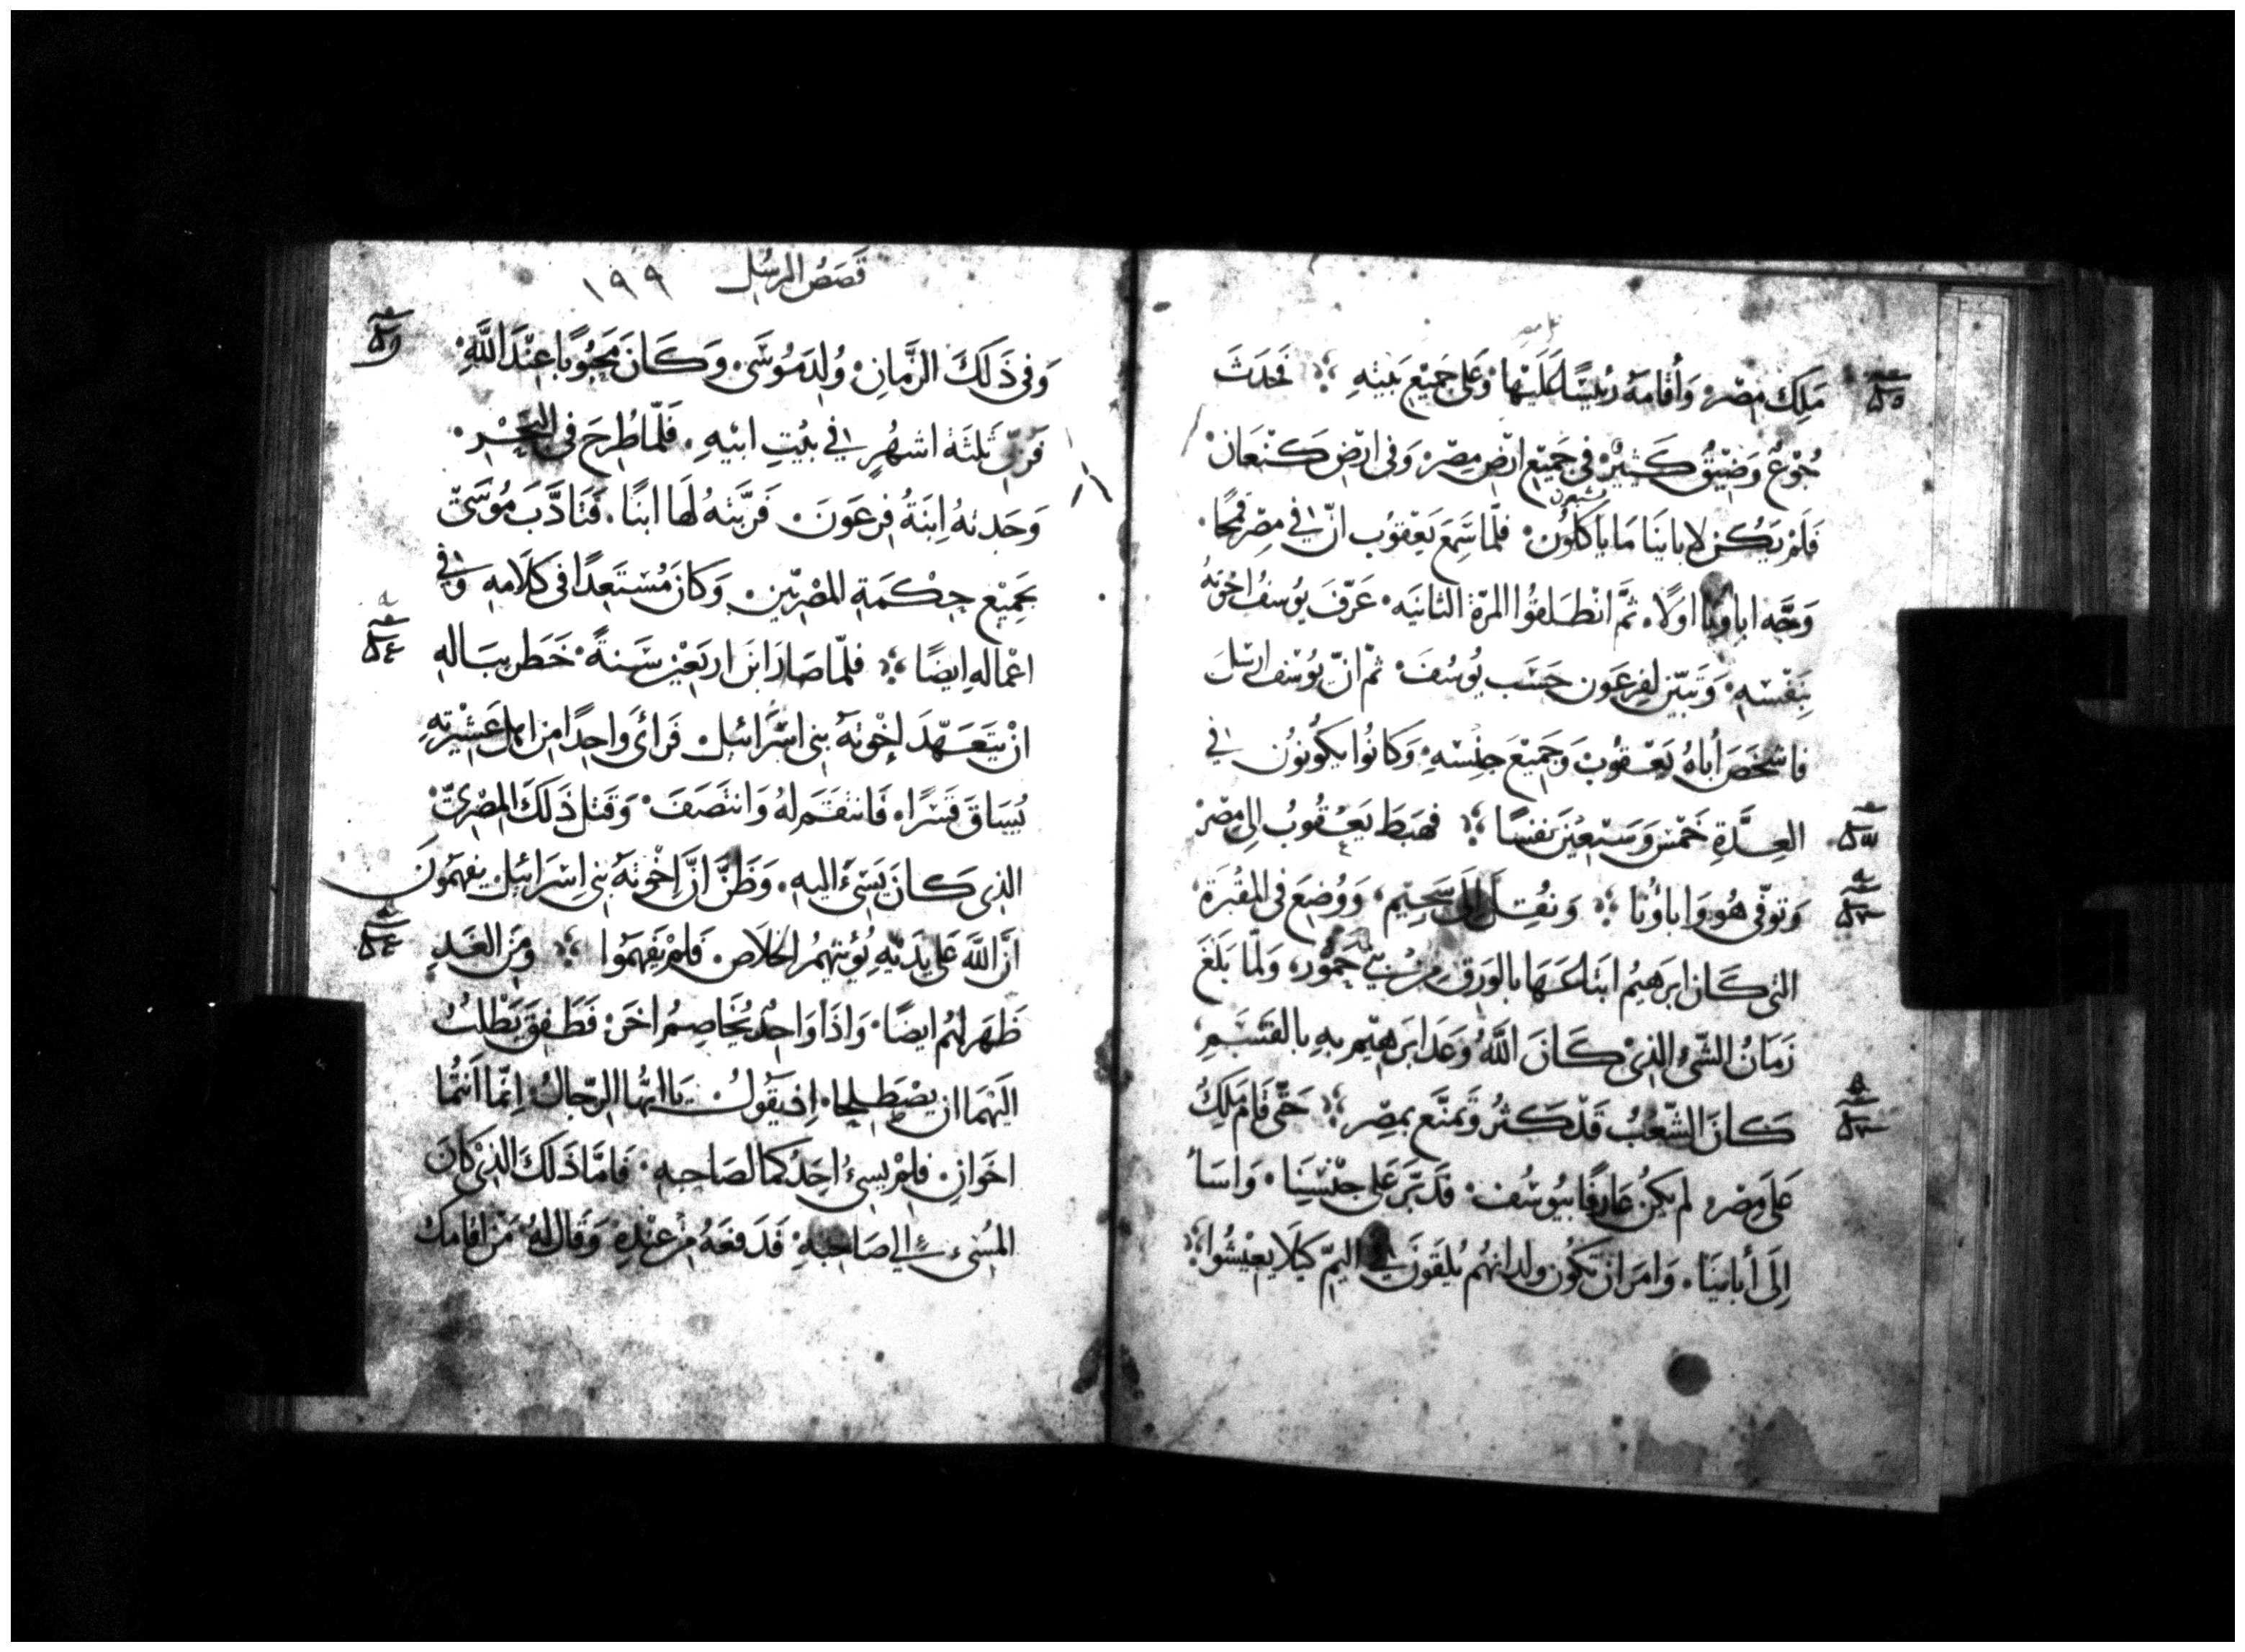 مَلِكِ مِصْرَ وَأَقَامَهُ رَئيسًا عَلَيْهَا وَعَلَى جَمِيْعِ بَيتِهِ ۞ فَحَدَثَ
جُوْعٌ وَضِيْقٌ كَثِيْرٌ فِي جَمِيْعِ ارْضِ مِصْرَ وَفِى ارْضِ كَنْعَانَ
فَلَمْ يَكُنْ لِابايِنَا مَا يَاكُلُوْنَ فَلَمَّا سَمِعَ يَعْقوُب انَّ فِي مِصْرَ قَمْحًا
وَجَّه اباونَا اولاً ثمَّ انْطَلَقُوا المرّةَ الثانيَه عَرَّفَ يُوسُفُ اخْوَتَهُ
بِنَفْسِهِ وَتَبَيَّن لِفِرعَون حَسَب يُوسُفَ ثمّ انّ يُوسُف ارْسَلَ
فاشْخَصَ أَبَاهُ يَعْقُوْبَ وَجَمِيْعَ جِنْسِهِ وَكَانُوا يكُونُون في
العِدَّةِ خَمْسَ وَسَبْعِيْنَ نفسًا ۞ فَهَبَطَ يَعْقُوبُ الى مِصْرَ
وَتوفّى هُو وَاباؤُنا ۞ وَنُقِلَ إلَى سَحِيْم وَوُضِعَ فِى المَقْبَرَةِ
التى كَانَ ابرَهِيمُ ابتاعَهَا بالوَرِقِ مِنْ بَنِي حَمُّور وَلَمَّا بَلَغَ
زَمَانُ الشّىءِ الذِىْ كَانَ اللَّهُ وَعَدَ ابرَهِيْم بِهِ بالقَسَمِ
كَانَ الشّعْبُ قَدْ كَثُرَ وَتمنَّع بمِصْر ۞ حَتَّى قَامَ مَلِكٌ
عَلَى مِصْرَ لم يَكُنْ عَارِفًا بيُوسُف فَدَبَّرَ عَلَى جِنْسِنَا وَاسَاءَ
إِلَى أبايِنَا وَامَرَ ان تَكُون ولدانهُم يُلْقَوْنَ فِي اليَمّ كَيلَا يعِيْشُوا
قَصَصُ الرسُل ١٩٩
وَفِى ذَلِكَ الزَّمانِ وُلِدَ مُوْسَى وَكَانَ مَحْبُوبًا عِنْدَ اللَّهِ
فَرُبِّى ثَلثَةَ اشهُرٍ فِي بَيْتِ ابيْهِ فَلَمّا طُرِحَ فِى البَحْر
وَجَدتهُ اِبنَةُ فِرعَونَ فَرَبَّتهُ لَهَا ابنًا فَتَادَّبَ مُوْسَى
بجَمِيْعِ حِكْمَةِ المصْرِيّين وَكَانَ مُسْتَعِدًا فى كَلَامهِ وَفي
اعْمالهِ ايضًا ۞ فَلَمَّا صَارَ ابنَ ارْبَعِيْن سَنةً خَطَر ببَاله
انْ يَتَعَهَّدَ إخْوَتَهُ بنى اسْرَائيل فَرَاَىَ وَاحِدًا مِن اهل عَشِيْرتِهِ
يُسَاقَ قَسْرًا فَانتقَمَ لهُ وَانتصَفَ وَقَتَل ذَلكَ المِصْرِىّ
الذِى كَانَ يُسِىءُ اليهِ وَظَنَّ انَّ إِخْوَتَهُ بنى اِسْرَائيل يفهَمُونَ
انَّ اللَّهَ عَلَى يَدَيْهِ يُؤْتِيهمُ الخلَاص فَلَمْ يَفْهَمُوا ۞ وَمِنَ الغَدِ
ظَهَرَ لهُم ايضًا وَاذَا وَاحِدٌ يُخَاصِمُ اخَرَ فَطَفِقَ يَطْلبُ
اليْهمَا ان يصْطلِحا اِذ يَقُولُ يَا ايُّهَا الرّجَالُ اِنّمَا انتُمَا
اخَوَانِ فلِمْ يسِىءُ احَدُكُمَا لصَاحبِهِ فَامَّا ذَلكَ الذِىْ كَانَ
المُسِىءَ إلي صَاحِبِهِ فَدَفعَهُ مِنْ عِنْدِهِ وَقَال لهُ مَنْ اقامَكَ